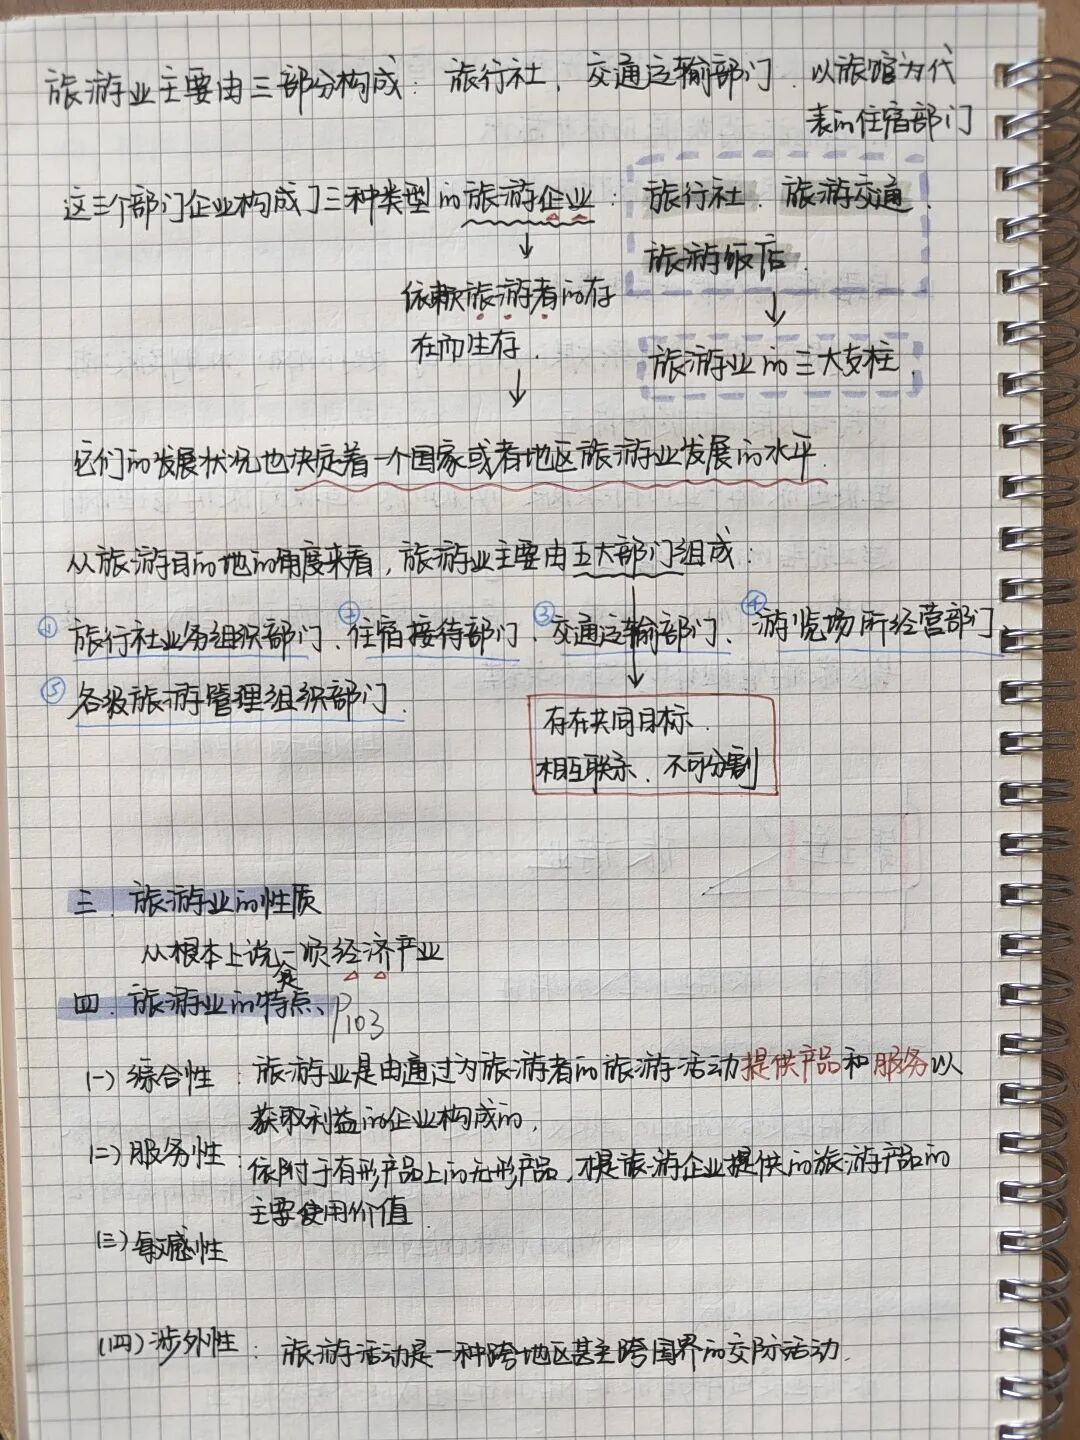 旅游业主要由三部分构成：旅行社、交通运输部门、以旅馆为代
表的住宿部门
这三个部门企业构成了三种类型的旅游企业：旅行社、旅游交通、
旅游饭店.
依赖旅游者的存
在而生存.
旅游业的三大支柱.
它们的发展状况也决定着一个国家或者地区旅游业发展的水平.
从旅游目的地的角度来看，旅游业主要由五大部门组成：
① 旅行社业务组织部门、② 住宿接待部门、③ 交通运输部门、④ 游览场所经营部门、
⑤ 各级旅游管理组织部门.
存在共同目标.
相互联系、不可分割
三. 旅游业的性质
从根本上说一项经济产业
四. 旅游业的特点、P103
(一) 综合性：旅游业是由通过为旅游者的旅游活动提供产品和服务以
获取利益的企业构成的.
(二) 服务性：依附于有形产品上的无形产品，才是旅游企业提供的旅游产品的
主要使用价值.
(三) 敏感性
(四) 涉外性：旅游活动是一种跨地区甚至跨国界的交际活动.